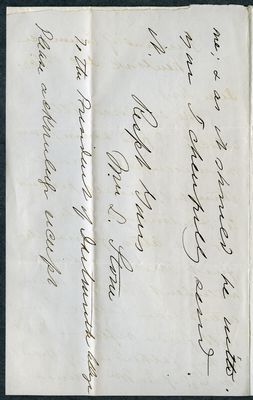 me; & as it should be with
you I cheerfully send
it.
Respt Yours
Wm. L. Stone
To the President of Dartmouth College
Please acknowledge receipt